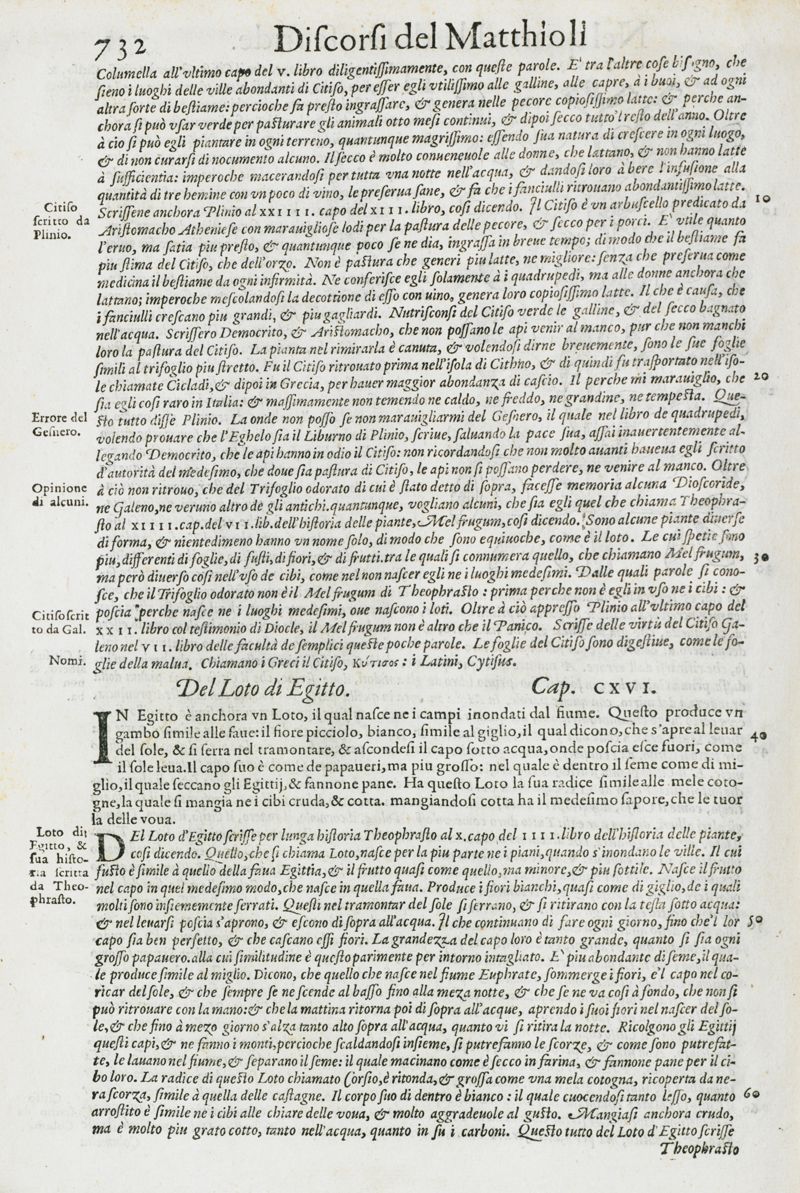 732 Diſcorſi del Matthioli
Columella all'vltimo capo del v. libro diligentiſſimamente, con queſte parole. E' tra l'altre coſe biſogno, che
ſieno i luoghi delle ville abondanti di Citiſo, per eſſer egli vtiliſſimo alle galline, alle capre, à i buoi, & ad ogni
altra ſorte di beſtiame: percioche fa preſto ingraſſare, & genera nelle pecore copioſiſſimo latte: & perche an-
chora ſi può vſar verde per paſturare gli animali otto meſi continui, & dipoi ſecco tutto'l reſto dell'anno. Oltre
à ciò ſi può egli piantare in ogni terreno, quantunque magriſſimo: eſſendo ſua natura di creſcere in ogni luogo,
& di non curarſi di nocumento alcuno. Il ſecco è molto conueneuole alle donne, che lattano, & non hanno latte
à ſufficientia: imperoche macerandoſi per tutta vna notte nell'acqua, & dandoſi loro à bere l'infuſione alla
quantità di tre hemine con vn poco di vino, le preſerua ſane, & fà che i fanciulli ritrouano abondantiſſimo latte.
Citiſo ſcritto da Plinio.
Scriſſene anchora Plinio al XXIIII. capo del XIII. libro, coſi dicendo. Il Citiſo è vn arbuſcello predicato da 10
Ariſtomacho Athenieſe con marauiglioſe lodi per la paſtura delle pecore, & ſecco per i porci. E' vtile quanto
l'eruo, ma ſatia piu preſto, & quantunque poco ſe ne dia, ingraſſa in breue tempo; di modo che il beſtiame fà
piu ſtima del Citiſo, che dell'orzo. Non è paſtura che generi piu latte, ne migliore: ſenza che preſerua come
medicina il beſtiame da ogni infirmità. Ne conferiſce egli ſolamente à i quadrupedi, ma alle donne anchora che
lattano; imperoche meſcolandoſi la decottione di eſſo con uino, genera loro copioſiſſimo latte. Il che è cauſa, che
i fanciulli creſcano piu grandi, & piu gagliardi. Nutriſconſi del Citiſo verde le galline, & del ſecco bagnato
nell'acqua. Scriſſero Democrito, & Ariſtomacho, che non poſſano le api venir al manco, pur che non manchi
loro la paſtura del Citiſo. La pianta nel rimirarla è canuta, & volendoſi dirne breuemente, ſono le ſue foglie
ſimili al trifoglio piu ſtretto. Fu il Citiſo ritrouato prima nell'iſola di Cithno, & di quindi fu traſportato nell'iſo-
le chiamate Cicladi, & dipoi in Grecia, per hauer maggior abondanza di caſcio. Il perche mi marauiglio, che 20
ſia egli coſi raro in Italia: & maſſimamente non temendo ne caldo, ne freddo, ne grandine, ne tempeſta. Que-
Errore del Geſnero.
ſto tutto diſſe Plinio. La onde non poſſo ſe non marauigliarmi del Geſnero, il quale nel libro de quadrupedi,
volendo prouare che l'Eghelo ſia il Liburno di Plinio, ſcriue, ſaluando la pace ſua, aſſai inauertentemente al-
legando Democrito, che le api hanno in odio il Citiſo: non ricordandoſi che non molto auanti haueua egli ſcritto
d'autorità del medeſimo, che doue ſia paſtura di Citiſo, le api non ſi poſſano perdere, ne venire al manco. Oltre
Opinione di alcuni.
à ciò non ritrouo, che del Trifoglio odorato di cui è ſtato detto di ſopra, faceſſe memoria alcuna Dioſcoride,
ne Galeno, ne veruno altro de gli antichi. quantunque, vogliano alcuni, che ſia egli quel che chiama Theophra-
ſto al XIIII. cap. del VII. lib. dell'hiſtoria delle piante, Mel frugum, coſi dicendo. Sono alcune piante diuerſe
di forma, & nientedimeno hanno vn nome ſolo, di modo che ſono equiuoche, come è il loto. Le cui ſpetie ſono
piu, differenti di foglie, di fuſti, di fiori, & di frutti. tra le quali ſi connumera quello, che chiamano Mel frugum, 30
ma però diuerſo coſi nell'vſo de cibi, come nel non naſcer egli ne i luoghi medeſimi. Dalle quali parole ſi cono-
ſce, che il Trifoglio odorato non è il Mel frugum di Theophraſto: prima perche non è egli in vſo ne i cibi: &
Citiſo ſcrit to da Gal.
poſcia perche naſce ne i luoghi medeſimi, oue naſcono i loti. Oltre à ciò appreſſo Plinio all'vltimo capo del
XXII. libro col teſtimonio di Diocle, il Mel frugum non è altro che il Panico. Scriſſe delle virtù del Citiſo Ga-
leno nel VII. libro delle facultà de ſemplici queſte poche parole. Le foglie del Citiſo ſono digeſtiue, come le fo-
Nomi.
glie della malua. Chiamano i Greci il Citiſo, Κύτισος: i Latini, Cytiſus.
Del Loto di Egitto. Cap. CXVI.
IN Egitto è anchora vn Loto, il qual naſce ne i campi inondati dal fiume. Queſto produce vn
gambo ſimile alle faue: il fiore picciolo, bianco, ſimile al giglio, il qual dicono, che s'apre al leuar 40
del ſole, & ſi ſerra nel tramontare, & aſcondeſi il capo ſotto acqua, onde poſcia eſce fuori, come
il ſole leua. Il capo ſuo è come de papaueri, ma piu groſſo: nel quale è dentro il ſeme come di mi-
glio, il quale ſeccano gli Egittij, & fannone pane. Ha queſto Loto la ſua radice ſimile alle mele coto-
gne, la quale ſi mangia ne i cibi cruda, & cotta. mangiandoſi cotta ha il medeſimo ſapore, che le tuor
la delle voua.
Loto di Egitto, & ſua hiſto-ria ſcritta da Theo-phraſto.
DEl Loto d'Egitto ſcriſſe per lunga hiſtoria Theophraſto al x. capo del IIII. libro dell'hiſtoria delle piante,
coſi dicendo. Quello, che ſi chiama Loto, naſce per la piu parte ne i piani, quando s'inondano le ville. Il cui
fuſto è ſimile à quello della faua Egittia, & il frutto quaſi come quello, ma minore, & piu ſottile. Naſce il frutto
nel capo in quel medeſimo modo, che naſce in quella faua. Produce i fiori bianchi, quaſi come di giglio, de i quali
molti ſono inſiememente ſerrati. Queſti nel tramontar del ſole ſi ſerrano, & ſi ritirano con la teſta ſotto acqua:
& nel leuarſi poſcia s'aprono, & eſcono di ſopra all'acqua. Il che continuano di fare ogni giorno, fino che'l lor 50
capo ſia ben perfetto, & che caſcano eſſi fiori. La grandezza del capo loro è tanto grande, quanto ſi ſia ogni
groſſo papauero. alla cui ſimilitudine è queſto parimente per intorno intagliato. E' piu abondante di ſeme, il qua-
le produce ſimile al miglio. Dicono, che quello che naſce nel fiume Euphrate, ſommerge i fiori, e'l capo nel co-
ricar del ſole, & che ſempre ſe ne ſcende al baſſo fino alla meza notte, & che ſe ne va coſi à fondo, che non ſi
può ritrouare con la mano: & che la mattina ritorna poi di ſopra all'acque, aprendo i ſuoi fiori nel naſcer del ſo-
le, & che fino à mezo giorno s'alza tanto alto ſopra all'acqua, quanto vi ſi ritira la notte. Ricolgono gli Egittij
queſti capi, & ne fanno i monti, percioche ſcaldandoſi inſieme, ſi putrefanno le ſcorze, & come ſono putrefat-
te, le lauano nel fiume, & ſeparano il ſeme: il quale macinano come è ſecco in farina, & fannone pane per il ci-
bo loro. La radice di queſto Loto chiamato Corſio, è ritonda, & groſſa come vna mela cotogna, ricoperta da ne-
ra ſcorza, ſimile à quella delle caſtagne. Il corpo ſuo di dentro è bianco: il quale cuocendoſi tanto leſſo, quanto 60
arroſtito è ſimile ne i cibi alle chiare delle voua, & molto aggradeuole al guſto. Mangiaſi anchora crudo,
ma è molto piu grato cotto, tanto nell'acqua, quanto in ſu i carboni. Queſto tutto del Loto d'Egitto ſcriſſe
Theophraſto